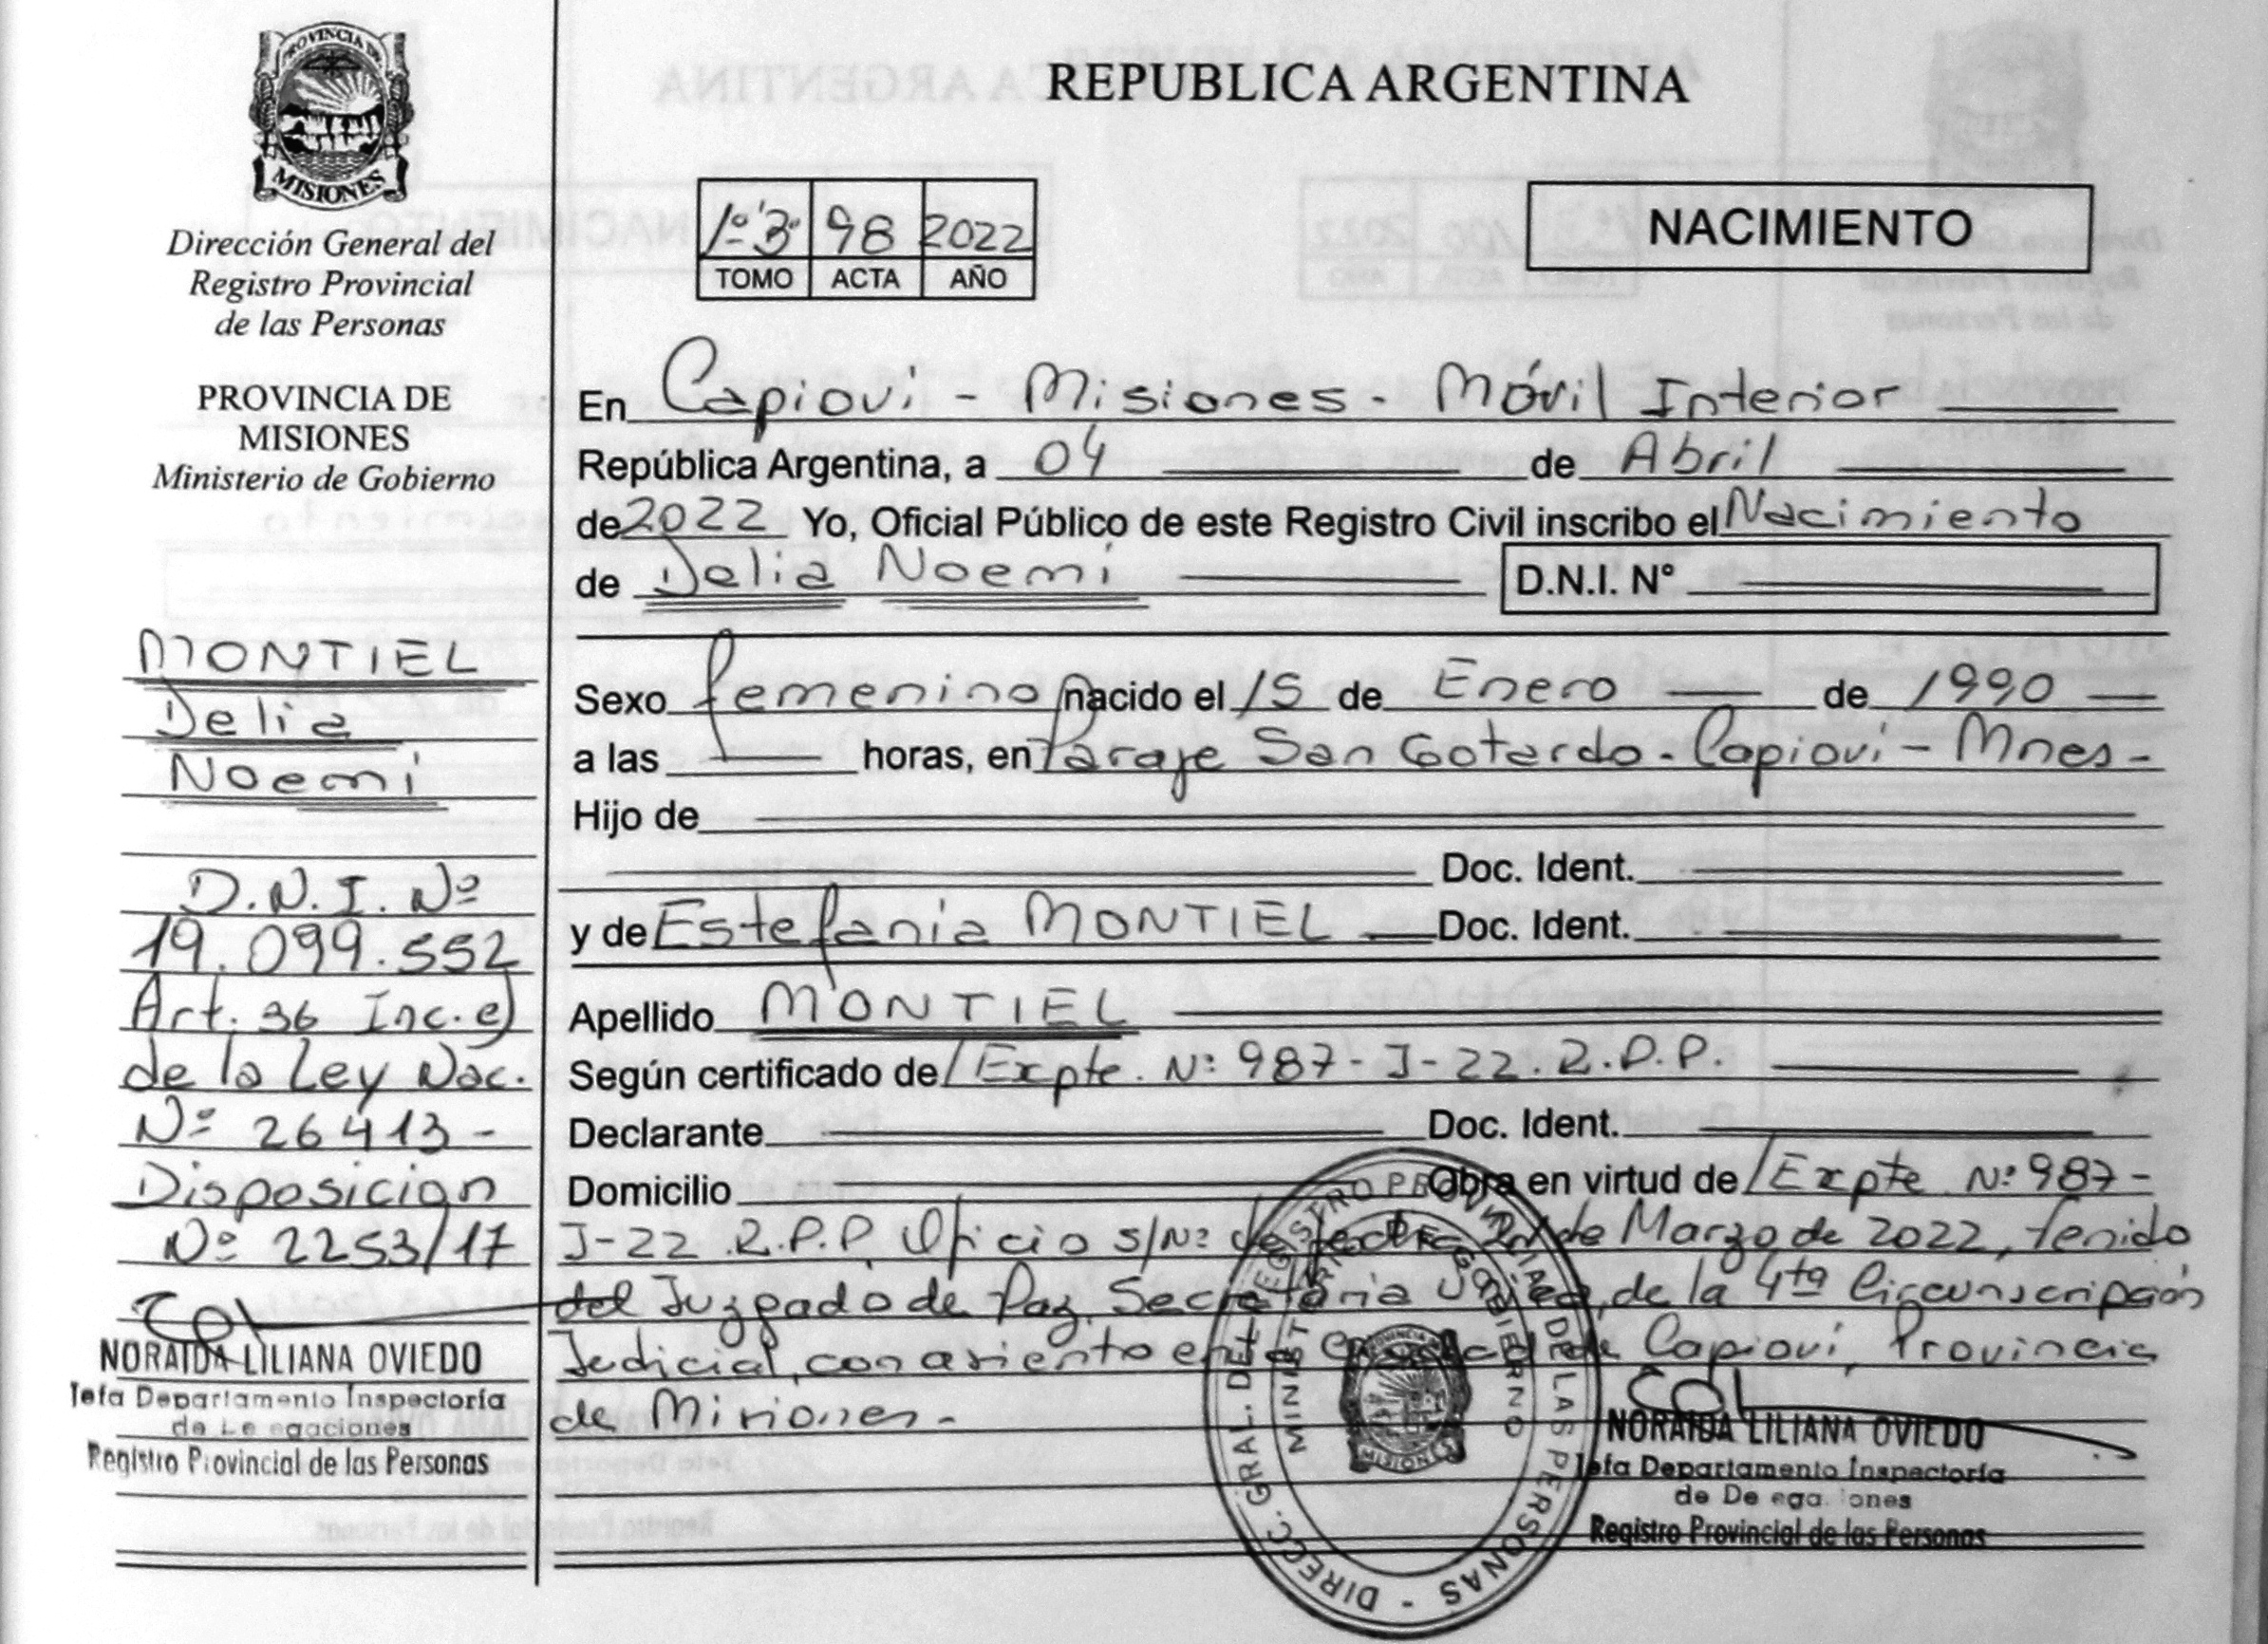 PROVINCIA DE
MISIONES
Dirección General del
Registro Provincial
de las Personas
PROVINCIA DE
MISIONES
Ministerio de Gobierno
MONTIEL
Delia
Noemi
D.N.I. Nº
19.099.552
Art. 36 Inc. e)
de la Ley Nac.
Nº 26413-
Disposicion
Nº 2253/17
NORAIDA LILIANA OVIEDO
Jefa Departamento Inspectoría
de Delegaciones
Registro Provincial de las Personas
REPUBLICA ARGENTINA
1º 3º 98 2022
TOMO ACTA AÑO
NACIMIENTO
En Capiovi - Misiones - Móvil Interior
República Argentina, a 04 de Abril
de 2022 Yo, Oficial Público de este Registro Civil inscribo el Nacimiento
de Delia Noemi D.N.I. N°
Sexo femenino nacido el 15 de Enero de 1990
a las horas, en Paraje San Gotardo - Capiovi - Mnes-
Hijo de
Doc. Ident.
y de Estefania MONTIEL Doc. Ident.
Apellido MONTIEL
Según certificado de /Expte. Nº 987-J-22. R.P.P.
Declarante Doc. Ident.
Domicilio Obra en virtud de /Expte Nº 987-
J-22 R.P.P Oficio s/Nº de fecha de Marzo de 2022, tenido
del Juzgado de Paz, Secretaria Unica, de la 4ta Circunscripción
Judicial, con asiento en la ciudad de Capiovi, Provincia
de Misiones-
DIRECC. GRAL. DEL REGISTRO PROVINCIAL DE LAS PERSONAS -
MINISTERIO DE GOBIERNO
PROVINCIA DE
MISIONES
NORAIDA LILIANA OVIEDO
Jefa Departamento Inspectoría
de Delegaciones
Registro Provincial de las Personas